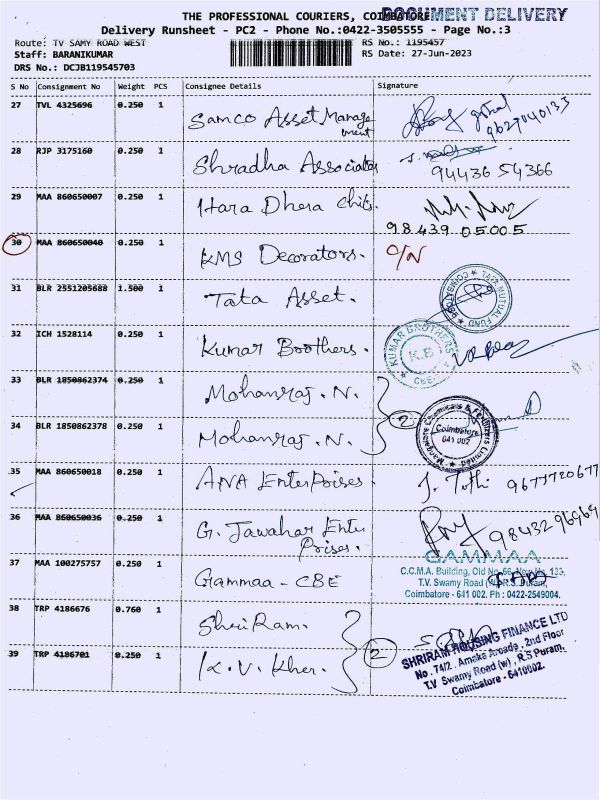 THE PROFESSIONAL COURIERS, COIMBATORE
DOCUMENT DELIVERY
Delivery Runsheet - PC2 - Phone No.:0422-3505555 - Page No.:3
Route: TV SAMY ROAD WEST
RS No.: 1195457
Staff: BARANIKUMAR
RS Date: 27-Jun-2023
DRS No.: DCJB119545703
S No Consignment No Weight PCS Consignee Details Signature
27 TVL 4325696 0.250 1 Samco Asset Manage
ment
28 RJP 3175160 0.250 1 Shradha Associates
94436 54366
29 MAA 860650007 0.250 1 Hara Dhera Chits.
98439 05005
30 MAA 860650040 0.250 1 KMS Decorators. O/N
31 BLR 2551205688 1.500 1 Tata Asset.
TATA MUTUAL FUND
COIMBATORE
32 ICH 1528114 0.250 1 Kumar Boothers.
KUMAR BROTHERS
K.B
CBE
33 BLR 1850862374 0.250 1 Mohanraj. N.
2
34 BLR 1850862378 0.250 1 Mohanraj. N.
Mangalore Chemicals & Fertilizers Limited
Coimbatore
641 002
35 MAA 860650018 0.250 1 ANA Enterprises J. Jothi 9677720677
36 MAA 860650036 0.250 1 G. Jawahar Enter
prises.
98432 96969
37 MAA 100275757 0.250 1 Gammaa - CBE
GAMMAA
C.C.M.A. Building, Old No. 66, New No. 133,
T.V. Swamy Road (W), R.S. Puram,
Coimbatore - 641 002. Ph : 0422-2549004.
38 TRP 4186676 0.760 1 Shri Ram.
2
39 TRP 4186701 0.250 1 K. V. Kher.
SHRIRAM HOUSING FINANCE LTD
No. 74/2, Amake Arcade, 2nd Floor
T.V Swamy Road (w), R.S Puram,
Coimbatore - 641002.